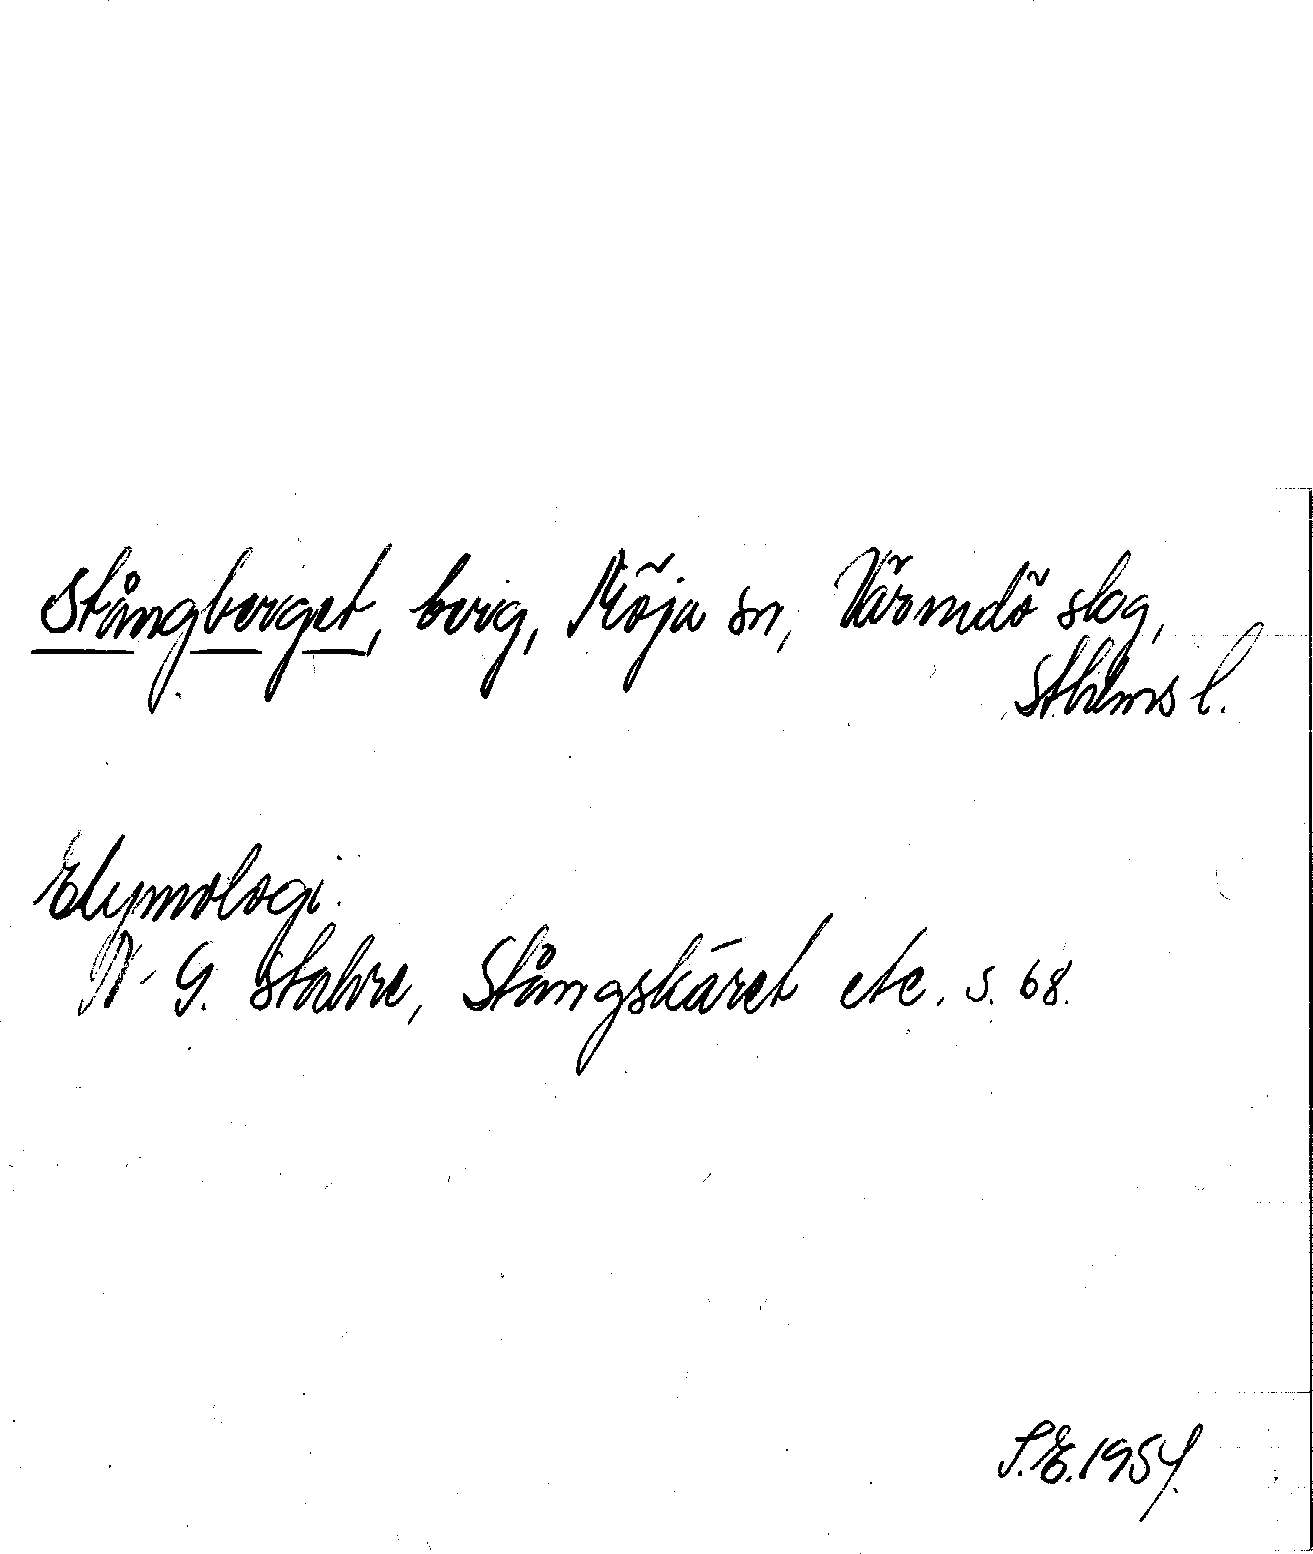 Stångberget, berg, Möja sn, Värmdö slag,
Sthlms l.
Etymologi.
N. G. Stahre, Stångskäret etc. s. 68.
S.E. 1954.